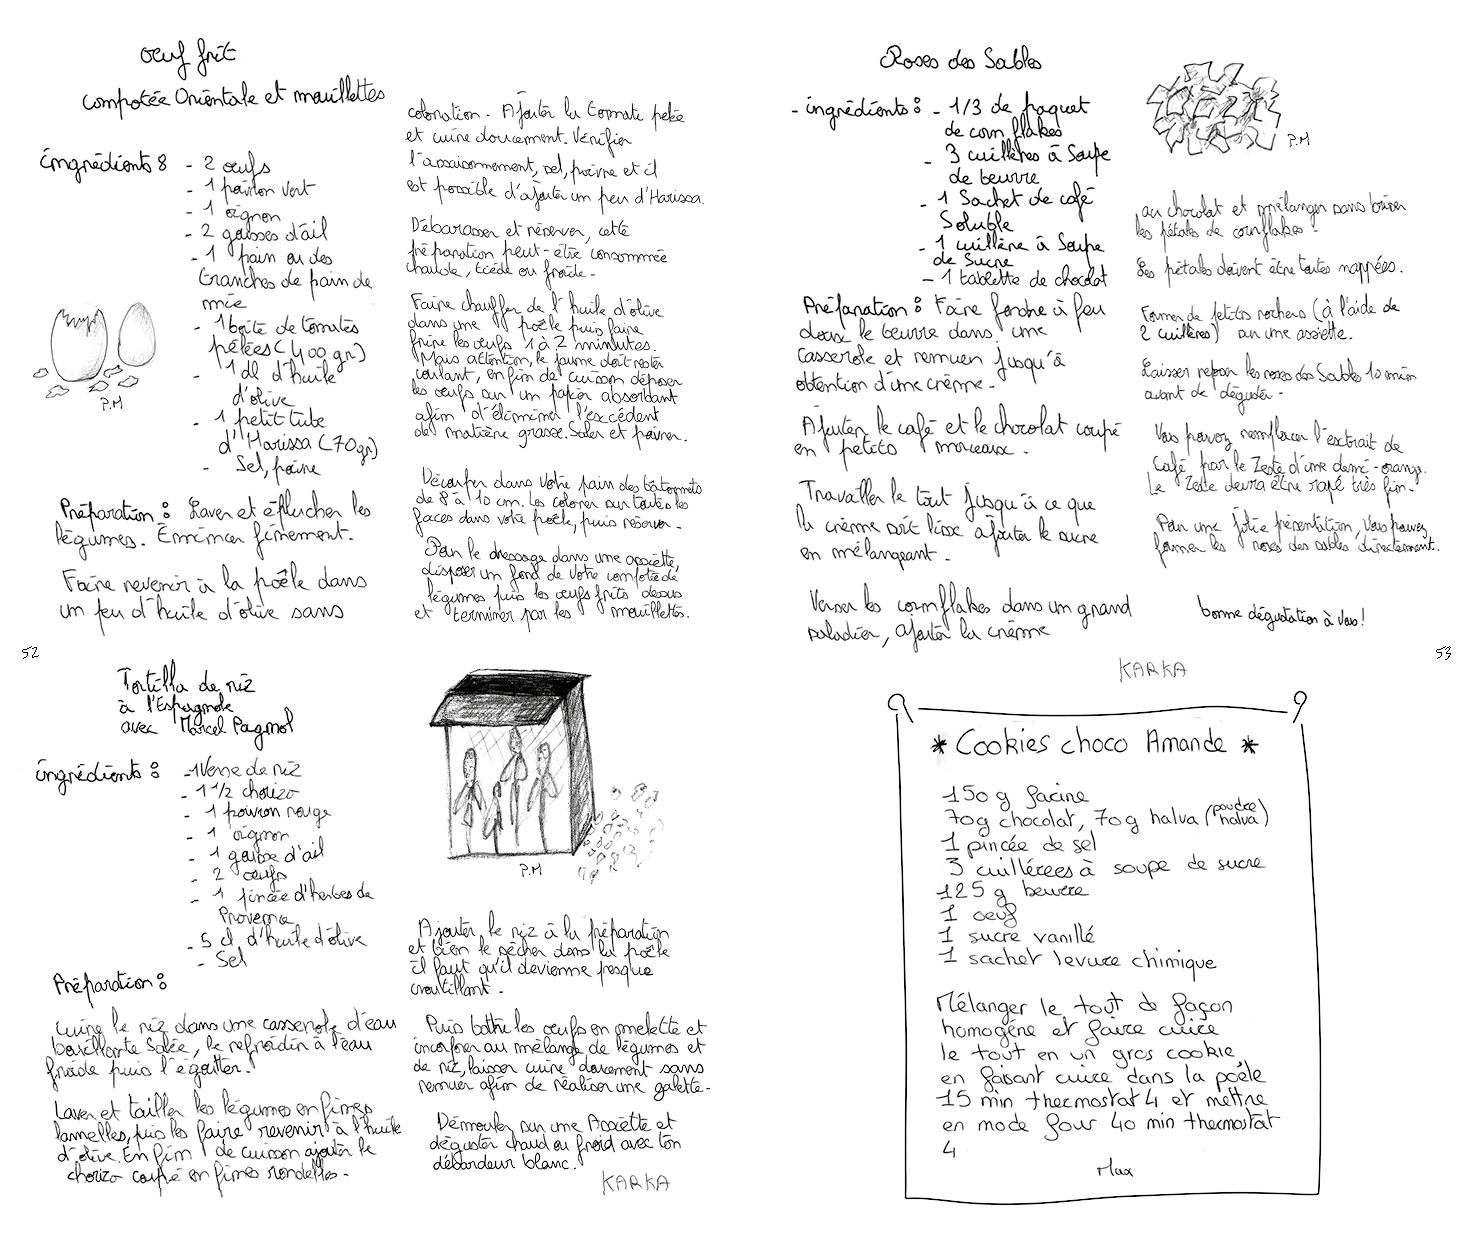 Oeuf frit
compotée Orientale et mouillettes
ingrédients :
- 2 oeufs
- 1 poivron vert
- 1 oignon
- 2 gousses d'ail
- 1 pain ou des
tranches de pain de
mie
- 1 boîte de tomates
pélées (400 gr)
- 1 dl d'huile
d'olive
- 1 petit tube
d'Harissa (70 gr)
- Sel, poivre
P.M
Préparation : Laver et éplucher les
légumes. Émincer finement.
Faire revenir à la poêle dans
un peu d'huile d'olive sans
coloration. Ajouter la tomate pelée
et cuire doucement. Vérifier
l'assaisonnement, sel, poivre et il
est possible d'ajouter un peu d'Harissa.
Débarasser et réserver, cette
préparation peut-être consommée
chaude, tiède ou froide.
Faire chauffer de l'huile d'olive
dans une poêle puis faire
frire les oeufs 1 à 2 minutes.
Mais attention, le jaune doit rester
coulant, en fin de cuisson déposer
les oeufs sur un papier absorbant
afin d'éliminer l'excédent
de matière grasse. Saler et poivrer.
Découper dans votre pain des bâtonnets
de 8 à 10 cm. Les colorer sur toutes les
faces dans votre poêle, puis réserver.
Pour le dressage dans une assiette,
disposer un fond de votre compotée de
légumes puis les oeufs frits dessus
et terminer par les mouillettes.
52
Roses des Sables
- ingrédients : - 1/3 de paquet
de corn flakes
- 3 cuillères à Soupe
de beurre
- 1 Sachet de café
Soluble
- 1 cuillère à Soupe
de Sucre
- 1 tablette de chocolat
P.M
Préparation : Faire fondre à feu
doux le beurre dans une
casserole et remuer jusqu'à
obtention d'une crème.
Ajouter le café et le chocolat coupé
en petits morceaux.
Travailler le tout jusqu'à ce que
la crème soit lisse ajouter le sucre
en mélangeant.
Verser les cornflakes dans un grand
saladier, ajouter la crème
au chocolat et mélanger sans briser
les pétales de cornflakes.
Les pétales doivent être toutes nappées.
Former de petits rochers (à l'aide de
2 cuillères) sur une assiette.
Laisser reposer les roses des Sables 10 min
avant de déguster.
Vous pouvez remplacer l'extrait de
Café par le Zeste d'une demi-orange.
Le Zeste devra être rapé très fin.
Pour une jolie présentation, vous pouvez
former les roses des sables directement.
bonne dégustation à vous!
KARKA
53
Tortilla de riz
à l'Espagnole
avec Marcel Pagnol
ingrédients :
- 1 Verre de riz
- 1 1/2 chorizo
- 1 poivron rouge
- 1 oignon
- 1 gousse d'ail
- 2 oeufs
- 1 pincée d'herbes de
Provence
- 5 cl d'huile d'olive
- Sel
P.M
Préparation :
Cuire le riz dans une casserole d'eau
bouillante Salée, le refroidir à l'eau
froide puis l'égoutter.
Laver et tailler les légumes en fines
lamelles, puis les faire revenir à l'huile
d'olive. En fin de cuisson ajouter le
chorizo coupé en fines rondelles.
Ajouter le riz à la préparation
et bien le sécher dans la poêle
il faut qu'il devienne presque
croutillant.
Puis battre les oeufs en omelette et
incorporer au mélange de légumes et
de riz, laisser cuire doucement sans
remuer afin de réaliser une galette.
Démouler sur une Assiette et
déguster chaud ou froid avec ton
débardeur blanc.
KARKA
* Cookies choco Amande *
150 g farine
70g chocolat, 70g halva (poudre halva)
1 pincée de sel
3 cuillérées à soupe de sucre
125 g beurre
1 oeuf
1 sucre vanillé
1 sachet levure chimique
Mélanger le tout de façon
homogène et faire cuire
le tout en un gros cookie,
en faisant cuire dans la poêle
15 min thermostat 4 et mettre
en mode four 40 min thermostat
4
Max